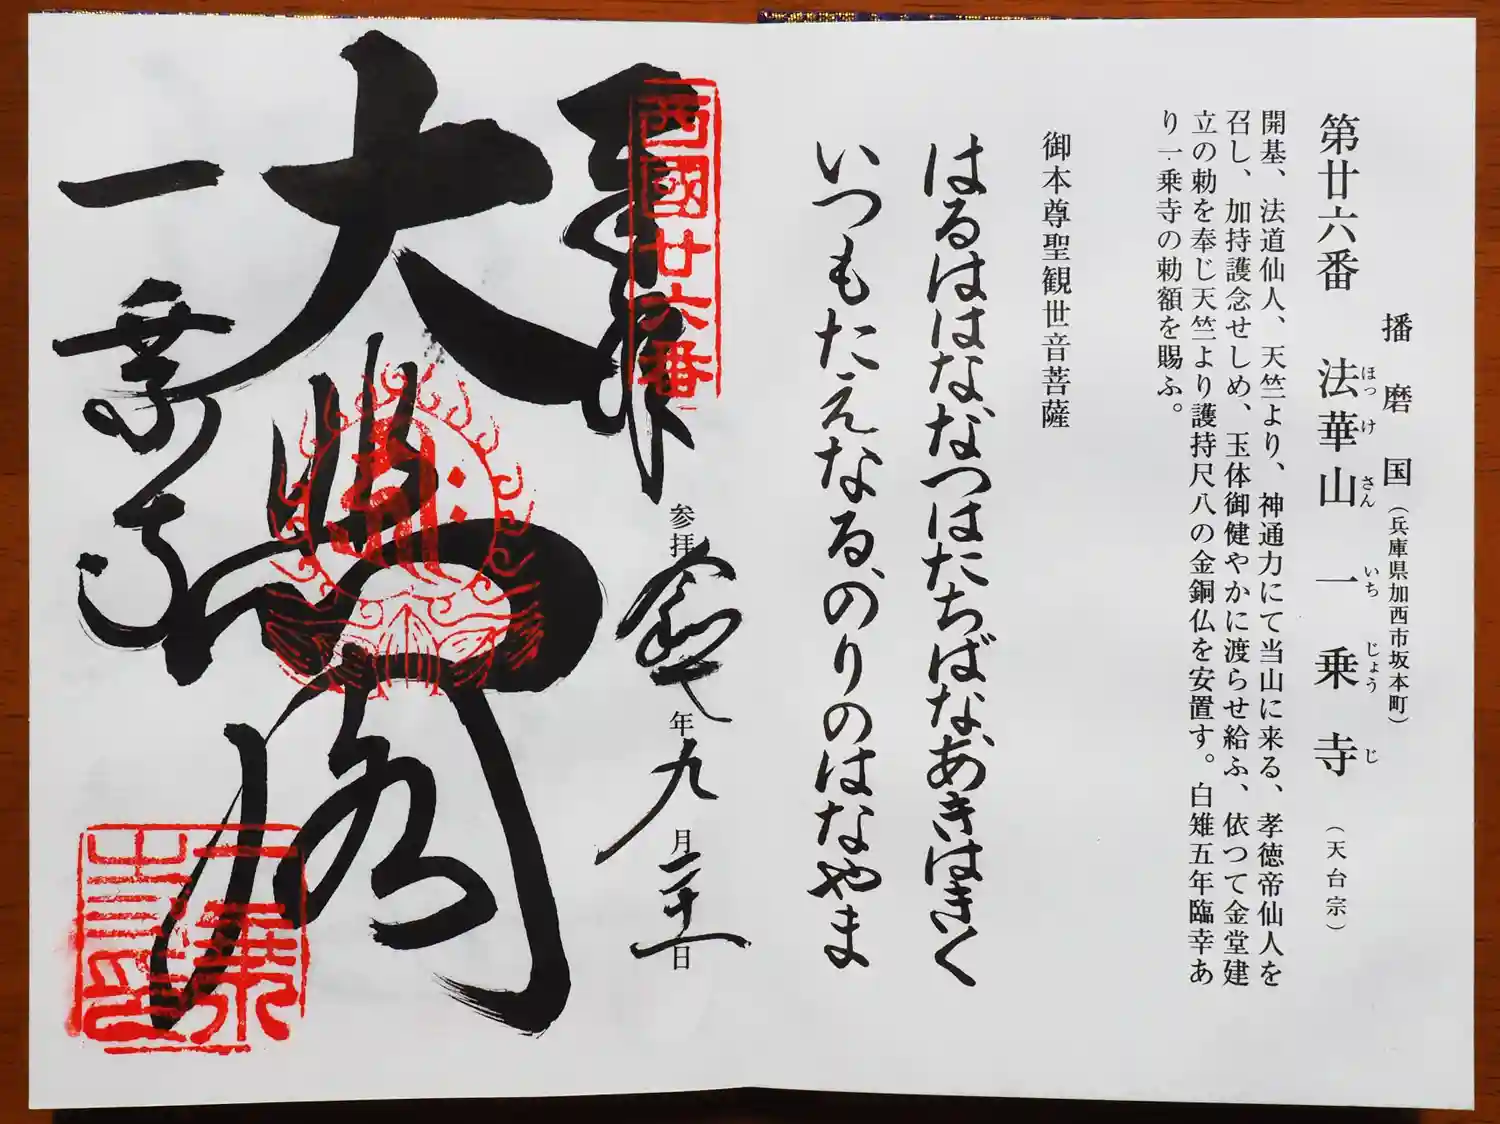 播磨国（兵庫県加西市坂本町）
第廿六番 法華山 一乗寺 （天台宗）
ほっ け さん いち じょう じ
開基、法道仙人、天竺より、神通力にて当山に来る、孝徳帝仙人を
召し、加持護念せしめ、玉体御健やかに渡らせ給ふ、依つて金堂建
立の勅を奉じ天竺より護持尺八の金銅仏を安置す。白雉五年臨幸あ
り一乗寺の勅額を賜ふ。
御本尊聖観世音菩薩
はるははななつはたちばなあきはきく
いつもたえなるのりのはなやま
奉拝
西國廿六番
参拝令和元年九月二十一日
大悲閣
一乗寺
一乗寺印